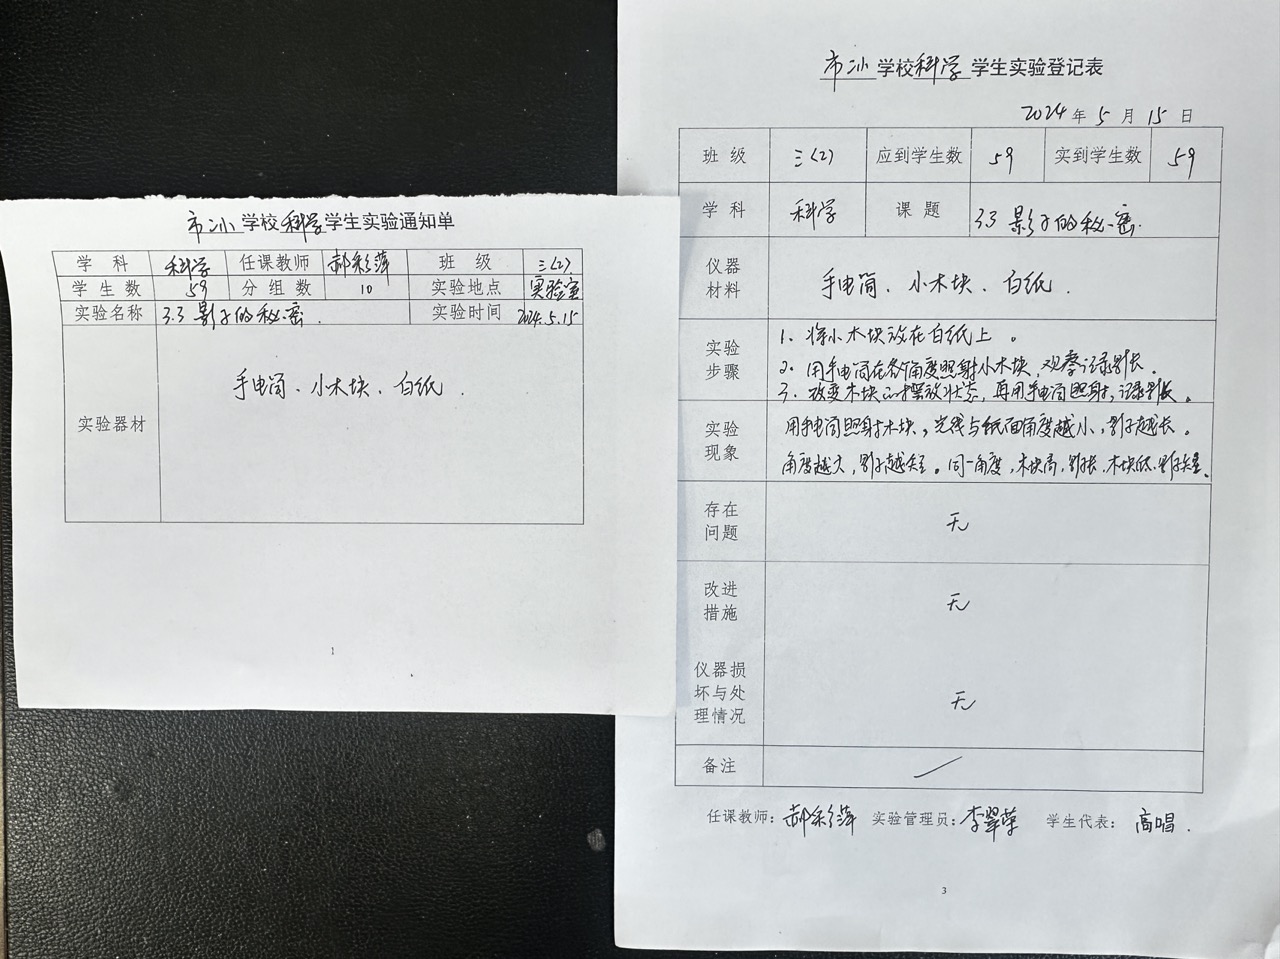 市二小学校科学学生实验通知单
学 科 科学 任课教师 郝彩萍 班 级 三(2)
学 生 数 59 分 组 数 10 实验地点 实验室
实验名称 3.3 影子的秘密. 实验时间 2024.5.15
实验器材 手电筒、小木块、白纸.
1
市二小学校科学学生实验登记表
2024年5月15日
班 级 三(2) 应到学生数 59 实到学生数 59
学 科 科学 课 题 3.3 影子的秘密.
仪器材料 手电筒、小木块、白纸.
实验步骤
1、将小木块放在白纸上。
2、用手电筒在各角度照射小木块,观察记录影长。
3、改变木块的摆放状态,再用手电筒照射,记录影长。
实验现象
用手电筒照射木块,光线与纸面角度越小,影子越长。
角度越大,影子越短。同一角度,木块高,影长,木块低,影子短。
存在问题 无
改进措施 无
仪器损坏与处理情况 无
备注 ／
任课教师:郝彩萍 实验管理员:李翠荣 学生代表:高唱.
3